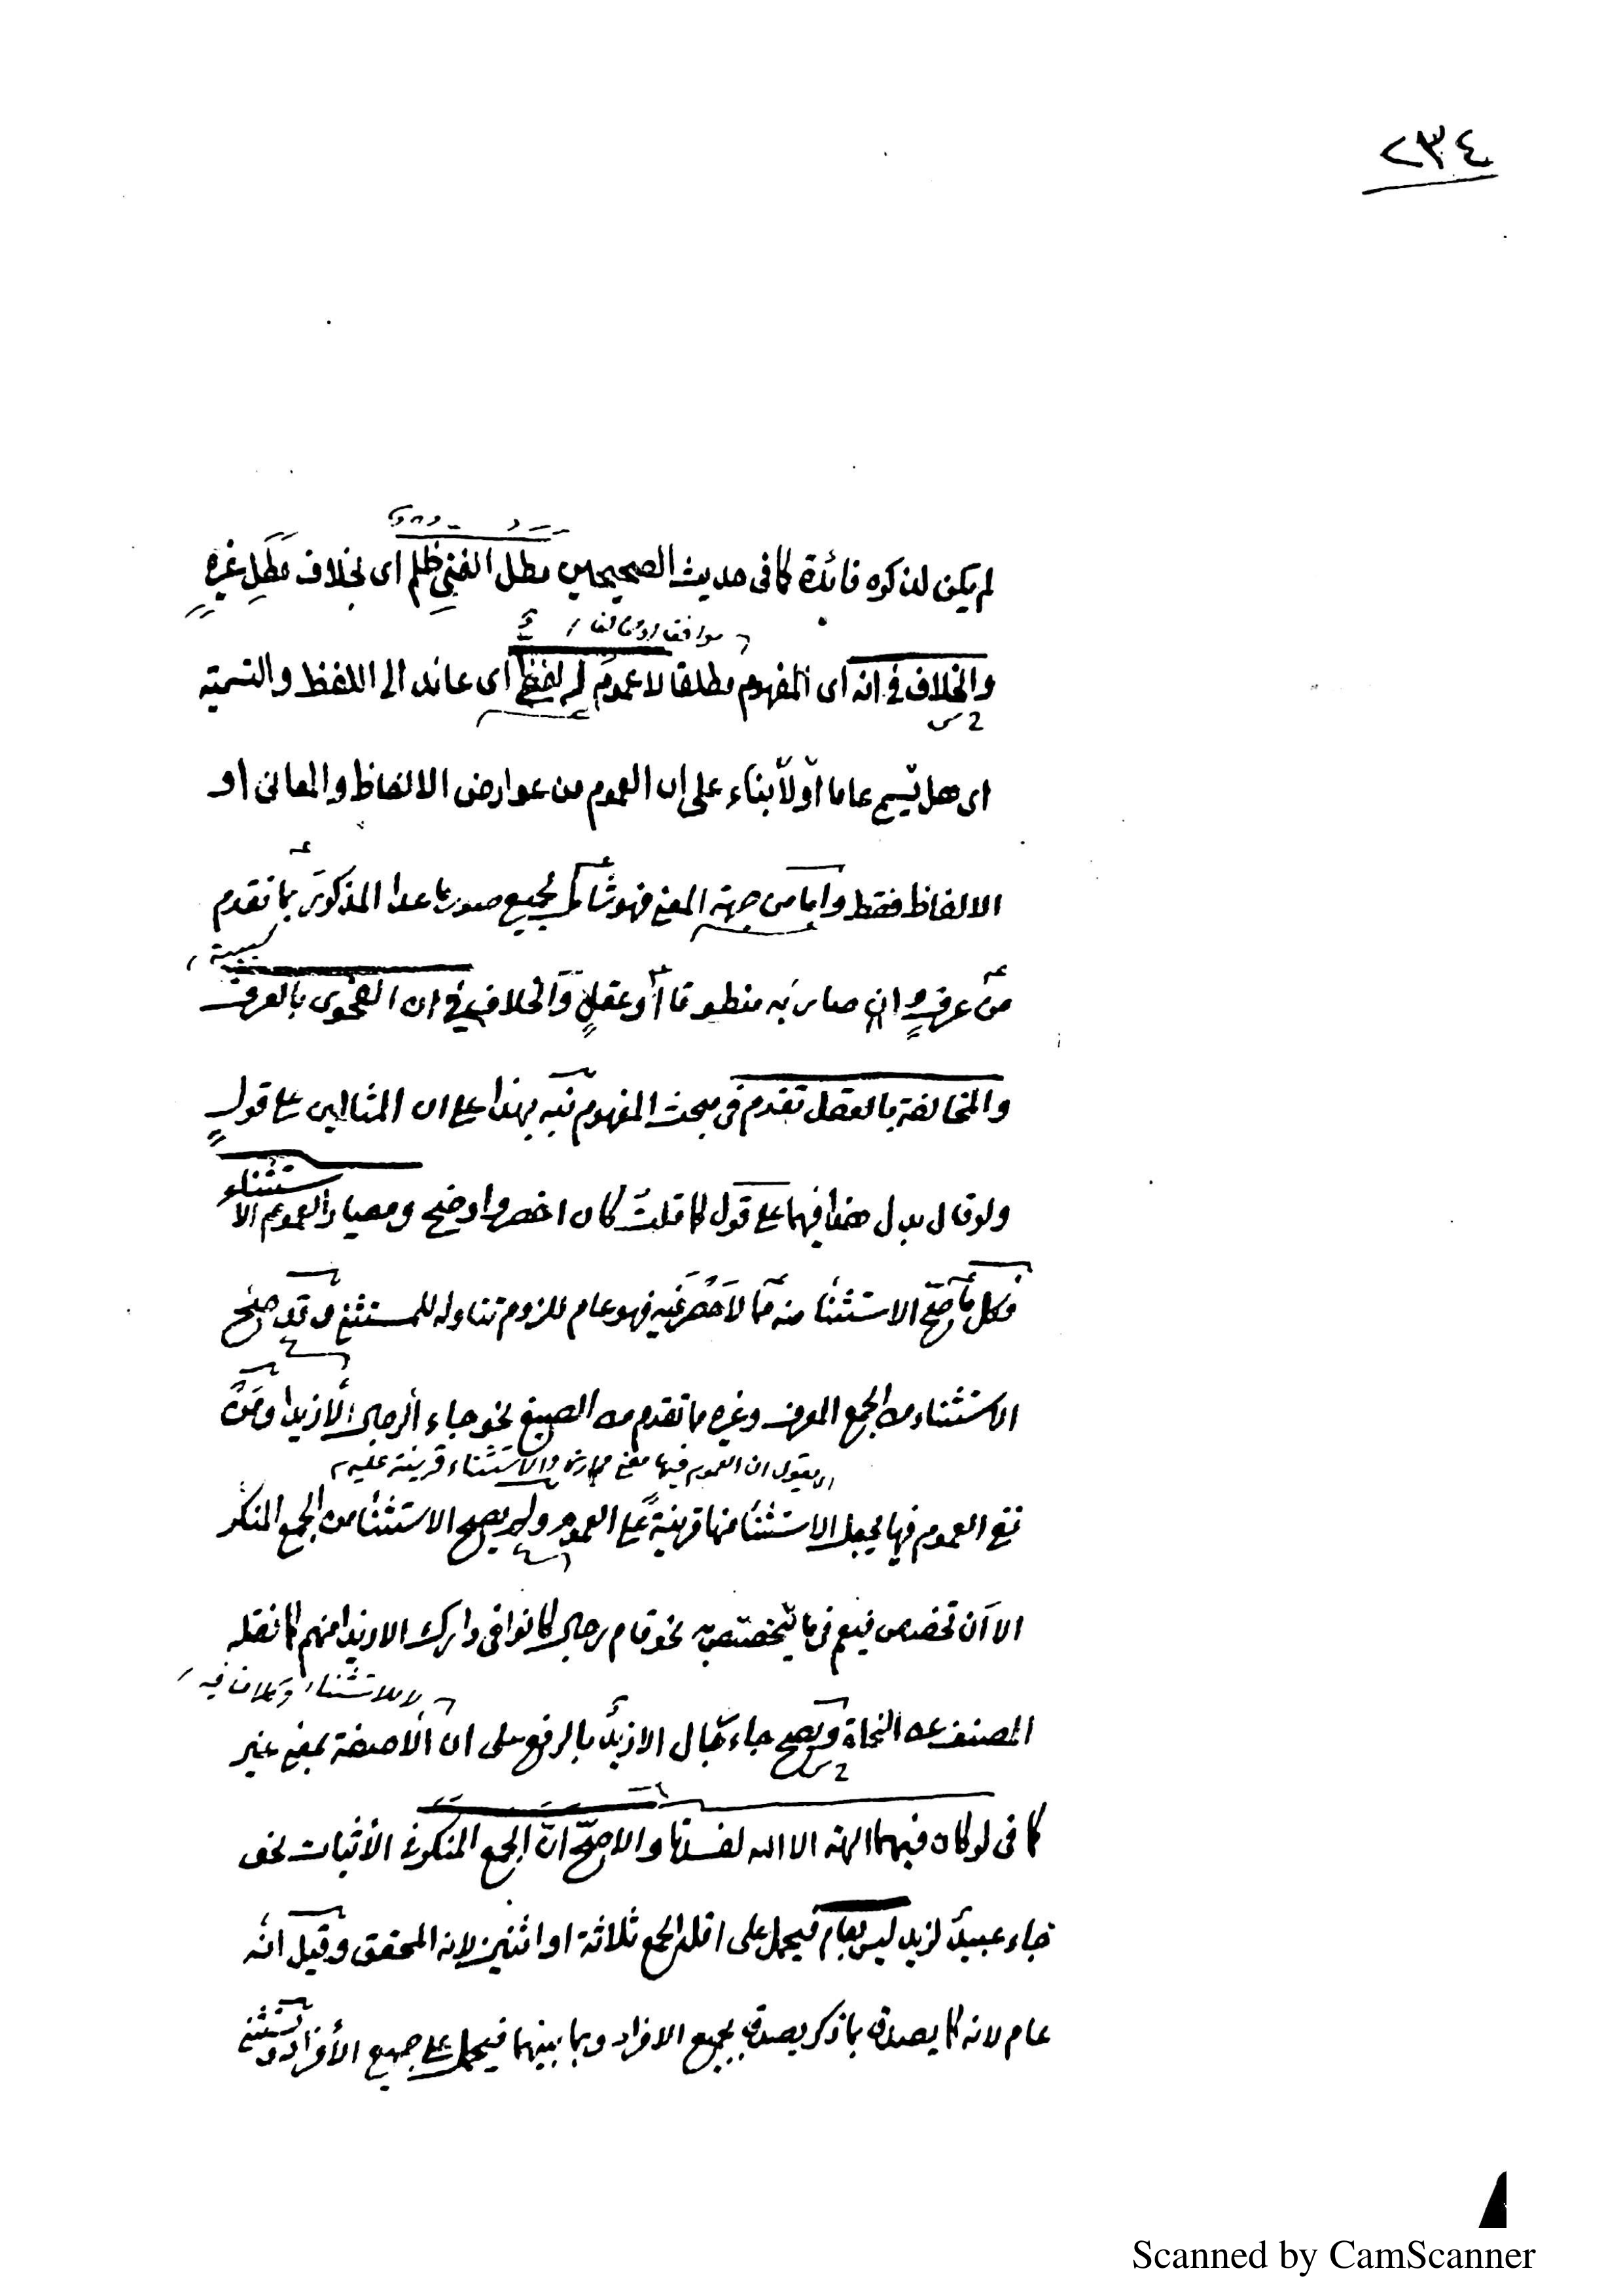 ٢٣٤
لم يكن لذكره فائدة كما فى حديث الصحيحين مطل الغنى ظلم اى بخلاف مطل غيره
موافقا او مخالفا
والخلاف فى انه اى المفهوم مطلقا لا عموم له لفظى اى عائد الى اللفظ والتسمية
اى هل يسمى عاما اوّلاً بناء على ان العموم من عوارض الالفاظ والمعانى او
الالفاظ فقط واما من جهة المعنى فهو شامل لجميع صور ما عدا المذكور بما تقدم
من عرف وان صار به منطوقا او عقل والخلاف فى ان الفحوى بالعرف
والمخالفة بالعقل تقدم فى مبحث المفهوم نبه بهذا على ان المثالين على قول
ولو قال بدل هذا فيهما على قول كما قلت كان اخصر واوضح ومعيار العموم الاستثناء
فكل ما صحّ الاستثناء منه مما لا حصر فيه فهو عام للزوم تناوله للمستثنى وقد صح
الاستثناء من الجمع المعرف وغيره مما تقدم من الصيغ نحو جاء الرجال الا زيدا ومن
ان العموم فيها معنى مجازى والاستثناء قرينة عليه
نفى العموم فيها يجعل الاستثناء منها قرينة على العموم ولم يصح الاستثناء من الجمع المنكر
الا ان تخصص فيعم فيما يتخصص به نحو قام رجال كانوا فى دارك الا زيدا منهم كما نقله
لا للاستثناء
المصنف عن النحاة ويصح جاء رجال الا زيدٌ بالرفع على ان الا صفة بمعنى غير
كما فى لو كان فيهما الهة الا الله لفسدتا والاصحّ انّ الجمع المنكر فى الأثبات نحو
جاء عبيدٌ لزيد ليس بعام فيحمل على اقل الجمع ثلاثة او اثنين لانه المحقق وقيل انه
عام لانه كما يصدق بما ذكر يصدق بجميع الافراد وبما بينهما فيحمل على جميع الأفراد ويستثنى
Scanned by CamScanner